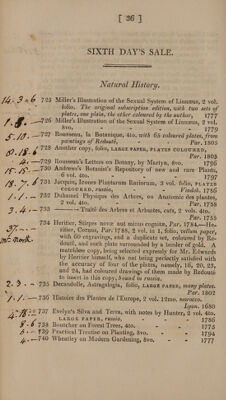 [ 36 ]
SIXTH DAY'S SALE.
Natural History.
14. 3 6 723 Miller's Illustration of the Sexual System of Linnæus, 2 vol.
folio. The original subscription edition, with two sets of
plates, one plain, the other coloured by the author, 1777
1. 8. — 726 Miller's Illustration of the Sexual System of Linnæus, 2 vol.
8vo. 1779
5. 10. — 727 Rousseau, la Botanique, 4to. with 65 coloured plates, from
paintings of Redouté, Par. 1805
728 Another copy, folio, LARGE PAPER, PLATES COLOURED,
Par. 1805
4. — 729 Rousseau's Letters on Botany, by Martyn, 8vo. 1796
15. 15. — 730 Andrews's Botanist's Repository of new and rare Plants,
6 vol. 4to. 1797
18. 7. 6 731 Jacquin, Icones Plantarum Rariorum, 3 vol. folio, PLATES
COLOURED, russia, Vindob. 1765
1. 1. — 732 Duhamel Physique des Arbres, ou Anatomie des plantes,
2 vol. 4to. Par. 1758
3. 4. — 733 Traité des Arbres et Arbustes, cuts, 2 vols. 4to.
Par. 1755
37. — 734 Heritier, Stirpes novæ aut minus cognitæ, Par. 1784.—He-
ritier, Cornus, Par. 1788, 2 vol. in 1, folio, vellum paper,
with 60 engravings, and a duplicate set, coloured by Re-
douté, and each plate surrounded by a border of gold. A
matchless copy, being selected expressly for Mr. Edwards
by Herrtier himself, who not being perfectly satisfied with
the accuracy of four of the plates, namely, 16, 20, 23,
and 24, had coloured drawings of them made by Redouté
to insert in this copy, bound in russia,
2. 3. — 735 Decandolle, Astragalogia, folio, LARGE PAPER, many plates.
Par. 1802
1. 1. — 736 Histoire des Plantes de l'Europe, 2 vol. 12mo. morocco.
Lyon. 1680
737 Evelyn's Silva and Terra, with notes by Hunter, 2 vol. 4to.
LARGE PAPER, russia, 1786
8. 6 738 Boutcher on Forest Trees, 4to. 1775
739 Practical Treatise on Planting, 8vo. 1794
4. — 740 Wheatley on Modern Gardening, 8vo. 1777